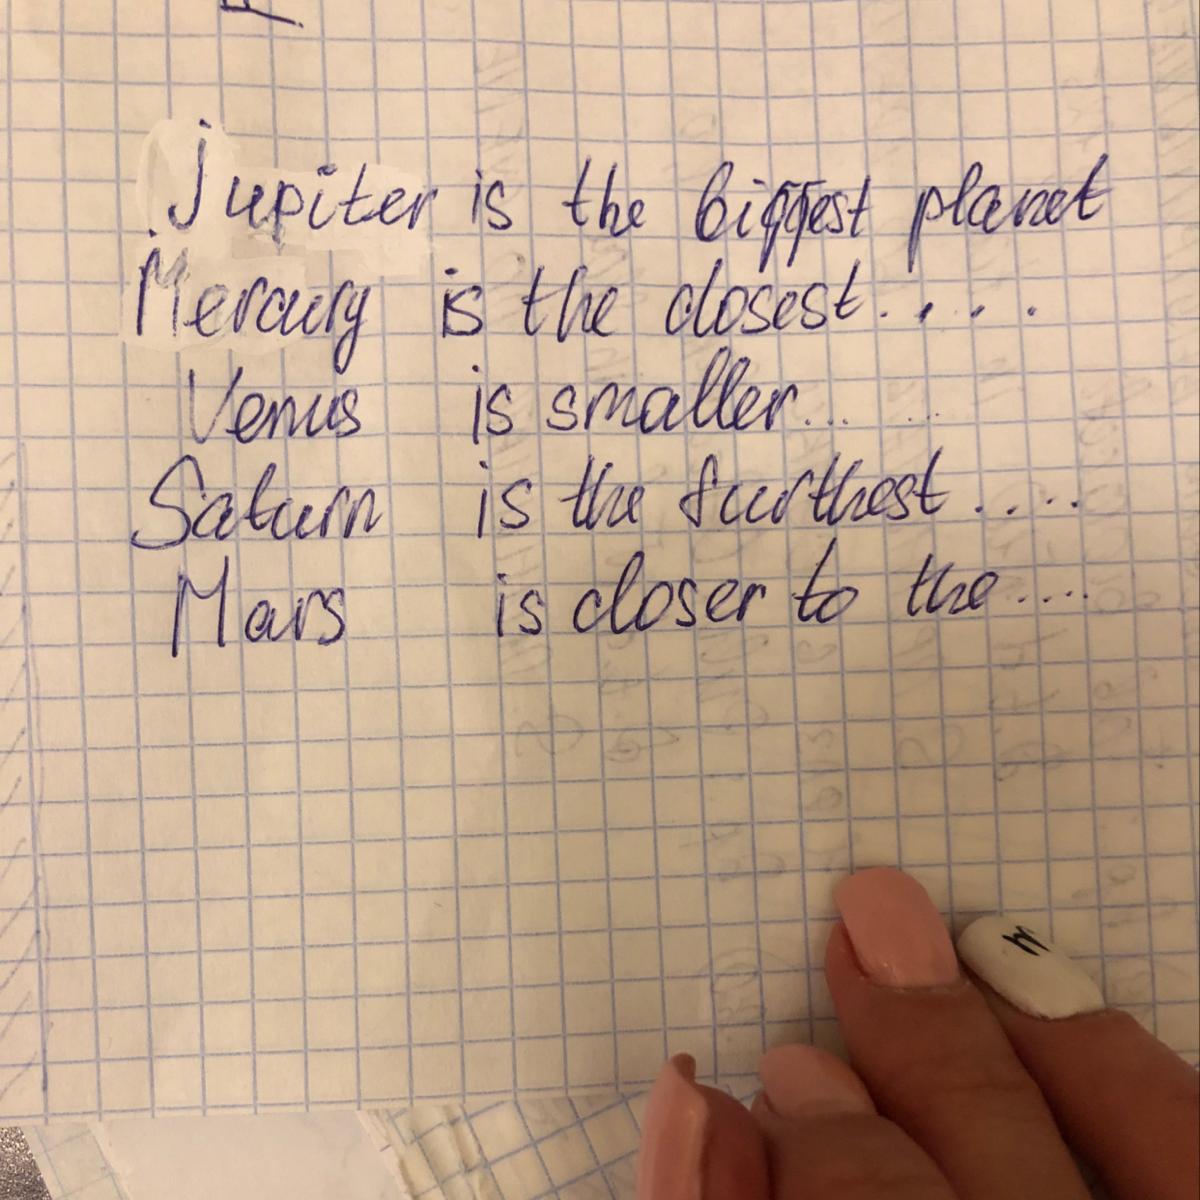 Jupiter is the biggest planet
Mercury is the closest.....
Venus is smaller... ...
Saturn is the furthest.....
Mars is closer to the....